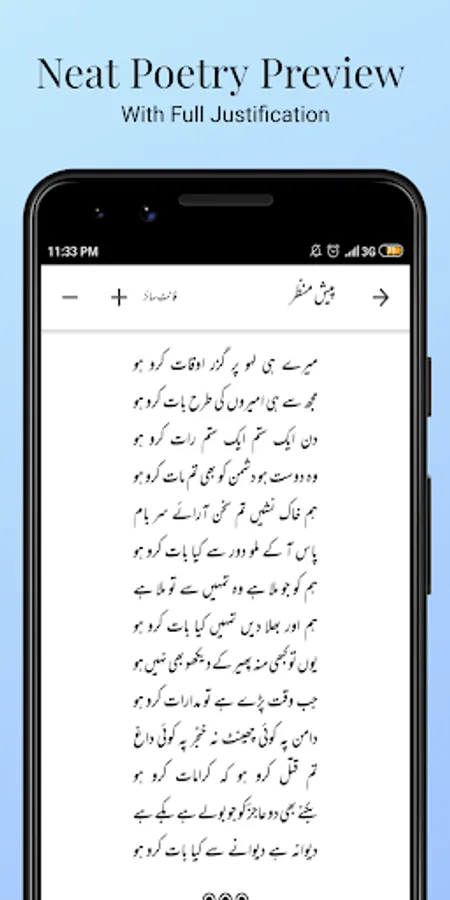 Neat Poetry Preview
With Full Justification
11:33 PM 3G
پیش منظر فونٹ سائز
میرے ہی لہو پر گزر اوقات کرو ہو
مجھ سے ہی امیروں کی طرح بات کرو ہو
دن ایک ستم ایک ستم رات کرو ہو
وہ دوست ہو دشمن کو بھی تم مات کرو ہو
ہم خاک نشیں تم سخن آرائے سر بام
پاس آ کے ملو دور سے کیا بات کرو ہو
ہم کو جو ملا ہے وہ تمہیں سے تو ملا ہے
ہم اور بھلا دیں تمہیں کیا بات کرو ہو
یوں تو کبھی منہ پھیر کے دیکھو بھی نہیں ہو
جب وقت پڑے ہے تو مدارات کرو ہو
دامن پہ کوئی چھینٹ نہ خنجر پہ کوئی داغ
تم قتل کرو ہو کہ کرامات کرو ہو
بکنے بھی دو عاجز کو جو بولے ہے بکے ہے
دیوانہ ہے دیوانے سے کیا بات کرو ہو